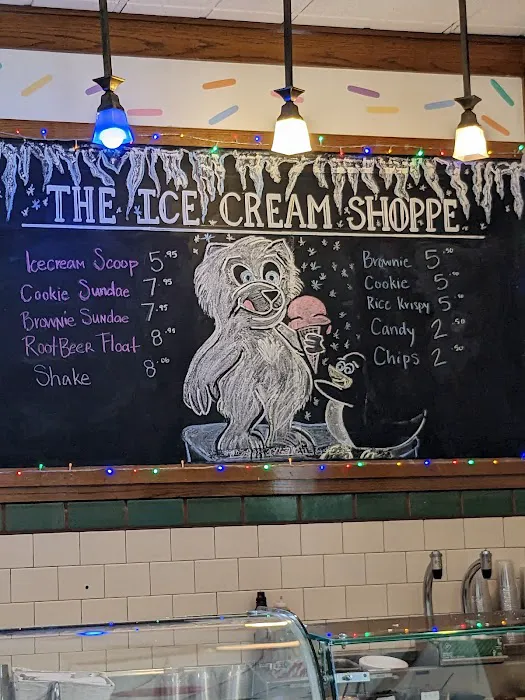 THE ICE CREAM SHOPPE
Icecream Scoop 5.95
Cookie Sundae 7.95
Brownie Sundae 7.95
RootBeer Float 8.95
Shake 8.00
Brownie 5.50
Cookie 5.50
Rice Krispy 5.50
Candy 2.50
Chips 2.50